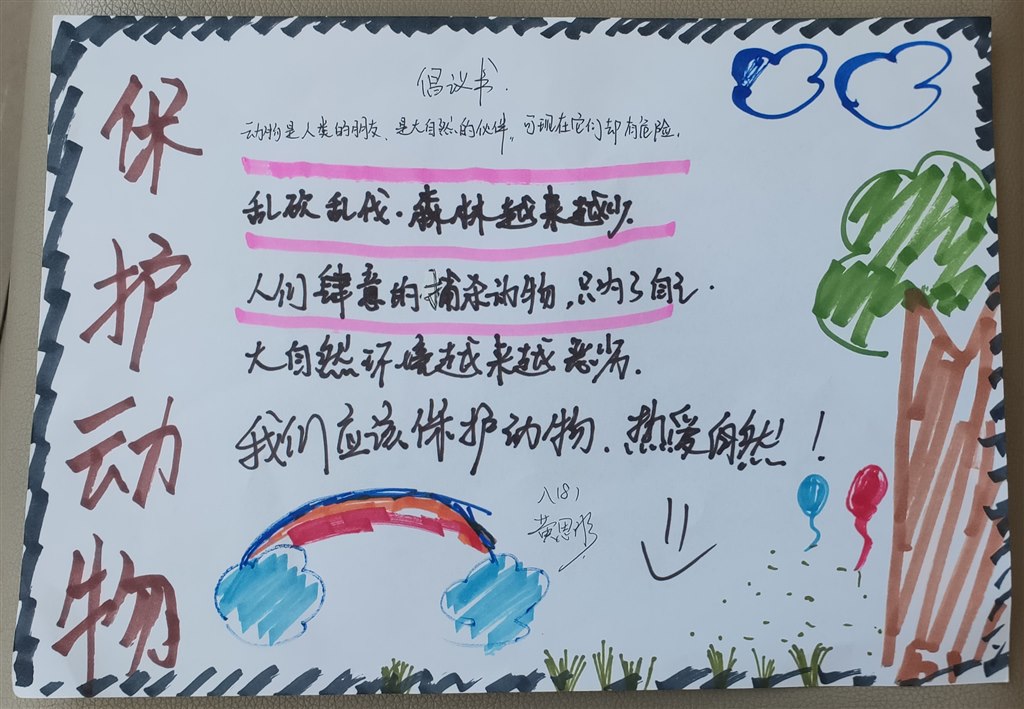 保护动物
倡议书.
动物是人类的朋友、是大自然的伙伴。可现在它们却有危险.
乱砍乱伐.森林越来越少.
人们肆意的捕杀动物,只为了自己.
大自然环境越来越恶劣.
我们应该保护动物.热爱自然!
八(8)
黄思彤